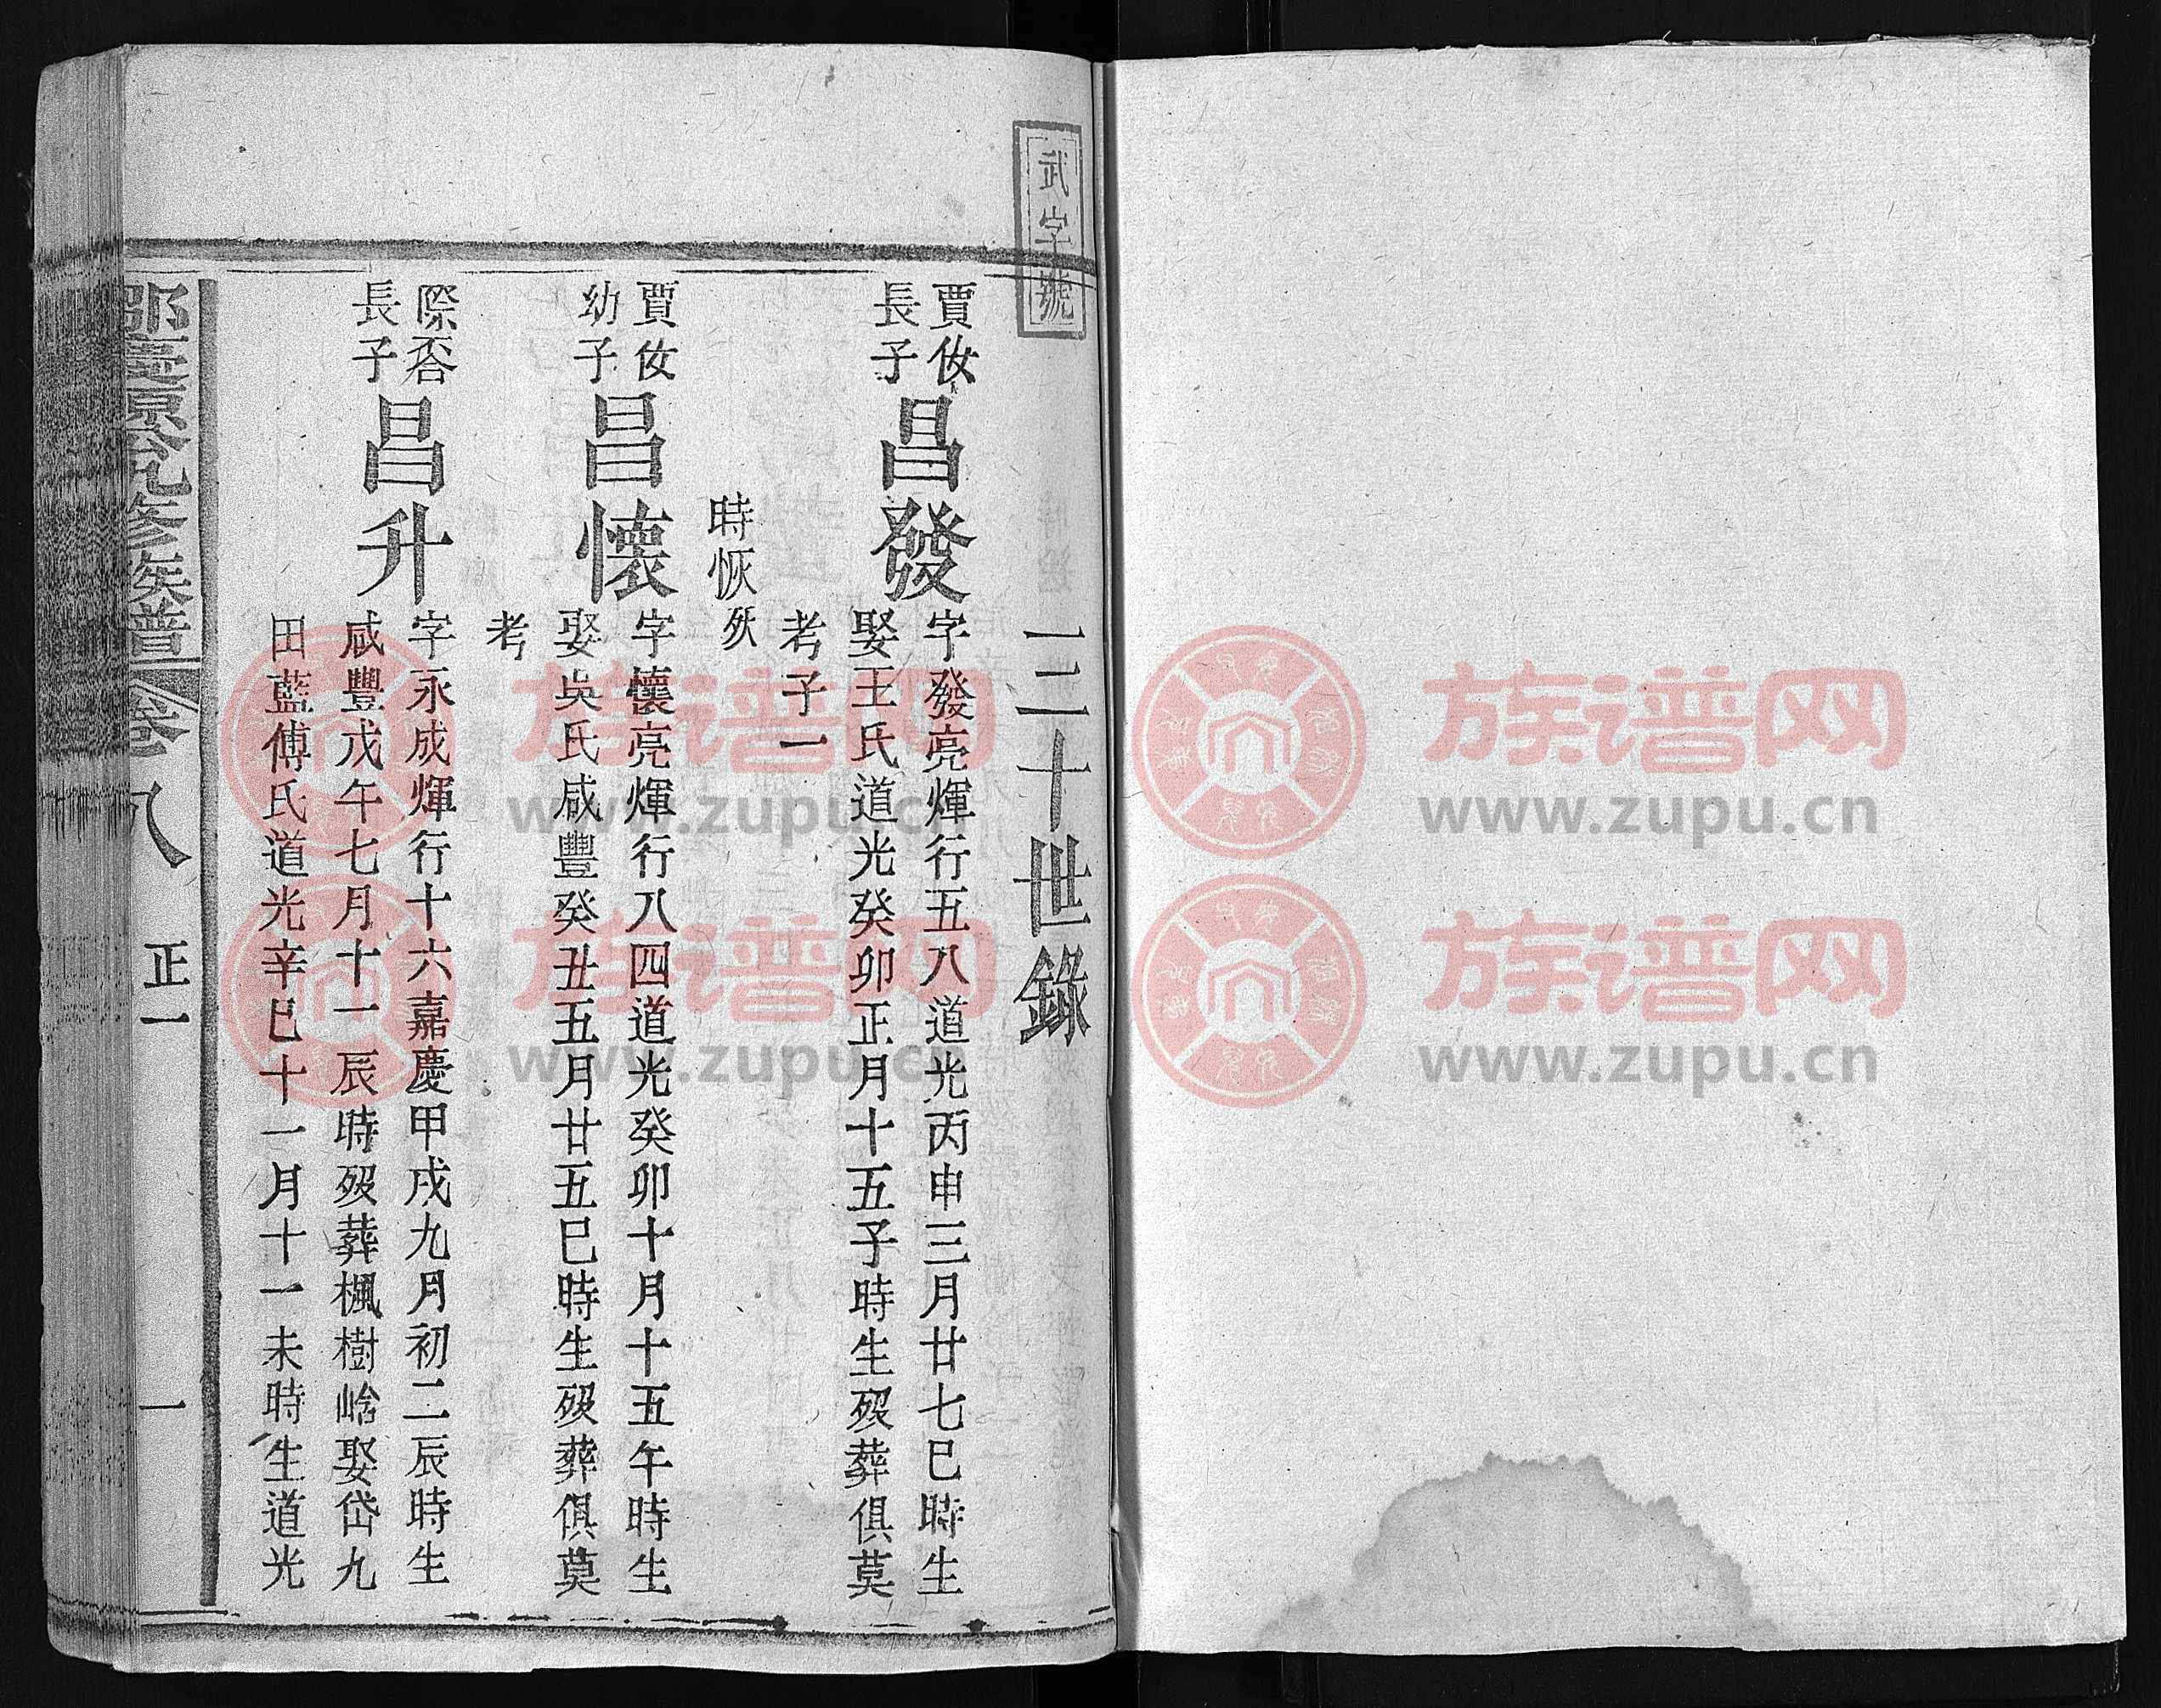 武字號
三十世錄
賈攸
長子
昌發
字發亮煇行五八道光丙申三月廿七巳時生
娶王氏道光癸卯正月十五子時生歿葬俱莫
考子一
時恢
歿
賈攸
幼子
昌懷
字懷亮煇行八四道光癸卯十月十五午時生
娶吳氏咸豐癸丑五月廿五巳時生歿葬俱莫
考
際吞
長子
昌升
字永成煇行十六嘉慶甲戌九月初二辰時生
咸豐戊午七月十一辰時歿葬楓樹峆娶岱九
田藍傅氏道光辛巳十一月十一未時生道光
慶源 修族譜 卷八 正一 一
族谱网
www.zupu.cn
族谱网
www.zupu.cn
族谱网
www.zupu.cn
族谱网
www.zupu.cn